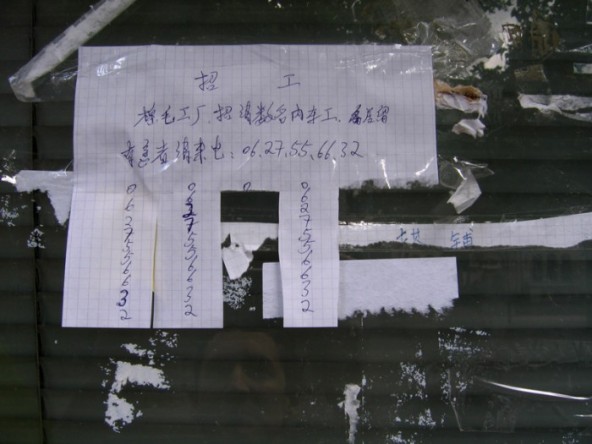 招 工
毛工厂, 招请数名内车工,
者请来电: 06.27.55.66.32
0 6 2 7 5 5 6 6 3 2
0 6 2 7 5 5 6 6 3 2
0
0 6 2 7 5 5 6 6 3 2